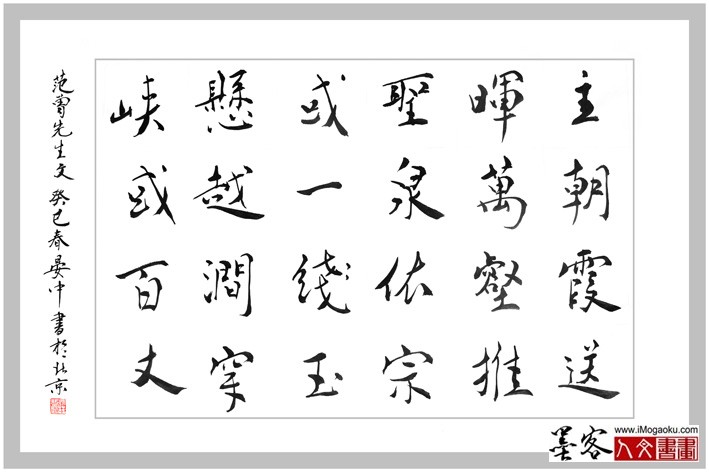 主朝霞送
暉萬壑推
聖泉依宗
或一綫玉
懸越澗穿
峡或百丈
范曾先生文 癸巳春晏中書於北京
墨客
www.iMogaoku.com
人文書畫